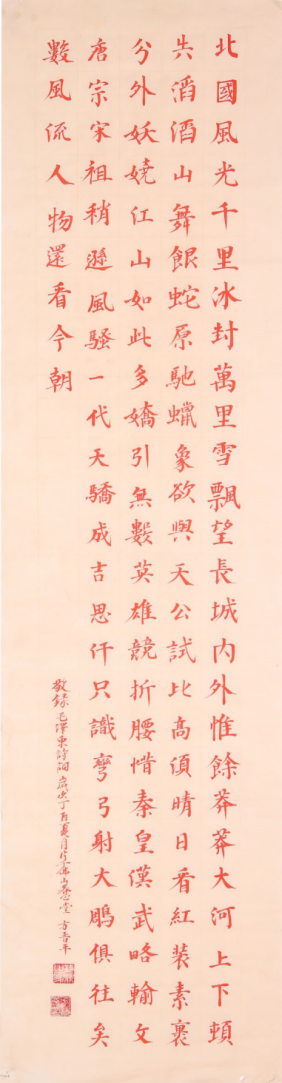 北國風光千里冰封萬里雪飄望長城内外惟餘莽莽大河上下頓
失滔滔山舞銀蛇原馳蠟象欲與天公試比高須晴日看紅装素裹
分外妖嬈江山如此多嬌引無數英雄競折腰惜秦皇漢武略輸文
唐宗宋祖稍遜風騷一代天驕成吉思汗只識彎弓射大鵰俱往矣
數風流人物還看今朝
敬錄毛澤東詩詞歲次丁酉夏月於佛山 方音平